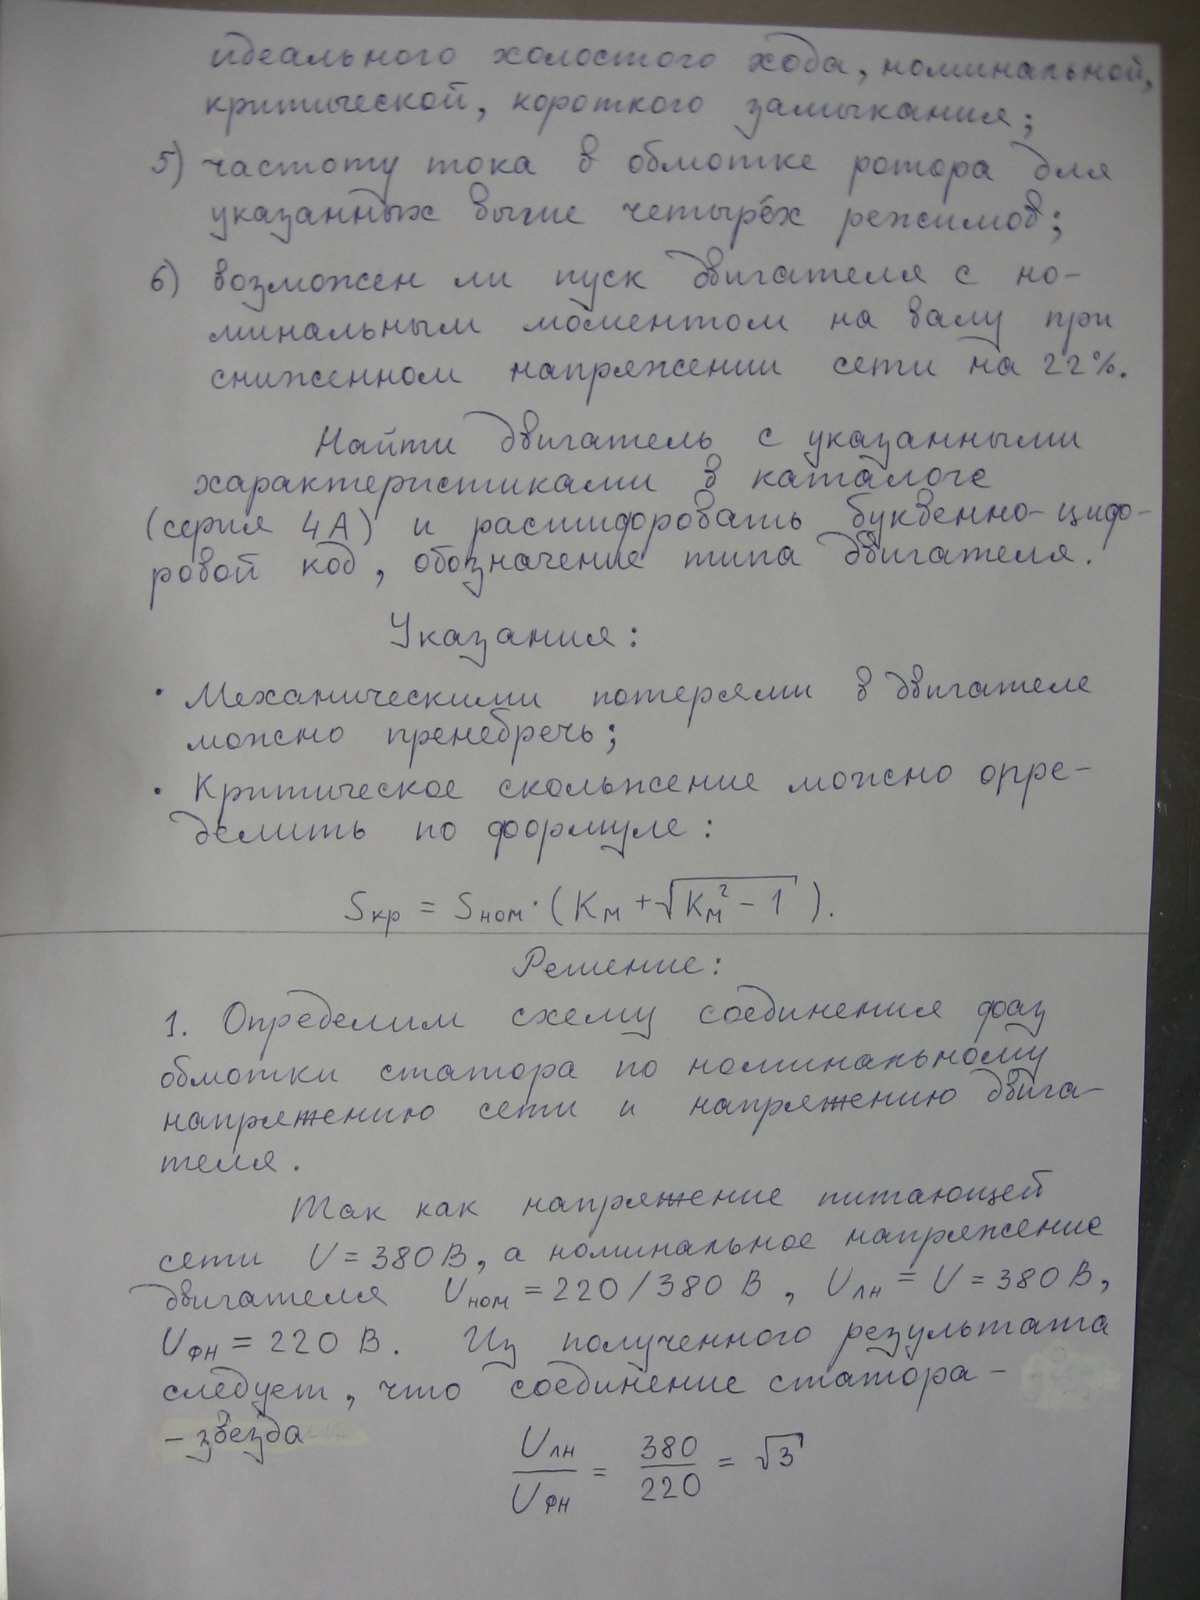 идеального холостого хода, номинальной,
критической, короткого замыкания;
5) частоту тока в обмотке ротора для
указанных выше четырёх режимов;
6) возможен ли пуск двигателя с но-
минальным моментом на валу при
сниженном напряжении сети на 22%.
Найти двигатель с указанными
характеристиками в каталоге
(серия 4А) и расшифровать буквенно-цифро-
ровой код, обозначение типа двигателя.
Указания:
• Механическими потерями в двигателе
можно пренебречь;
• Критическое скольжение можно опре-
делить по формуле:
Sкр = Sном · (Kм + √(Kм² - 1)).
Решение:
1. Определим схему соединения фаз
обмотки статора по номинальному
напряжению сети и напряжению двига-
теля.
Так как напряжение питающей
сети U = 380 В, а номинальное напряжение
двигателя Uном = 220/380 В, Uлн = U = 380 В,
Uфн = 220 В. Из полученного результата
следует, что соединение статора -
- звезда
Uлн/Uфн = 380/220 = √3